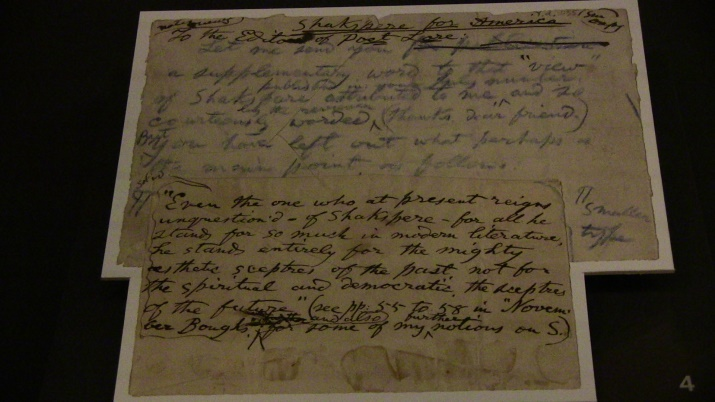 Shakspere for America
To the Editor of Poet Lore:
Let me send you
a supplementary word to that "view"
published in number
of Shakspere attributed to me and so
courteously worded (thanks, dear friend.)
But
you have left out what perhaps is
the main point, as follows.
smaller
type
"Even the one who at present reigns
unquestion'd – of Shakspere – for all he
stands for so much in modern literature,
he stands entirely for the mighty
esthetic sceptres of the past, not for
the spiritual and democratic, the sceptres
of the future." (see pp: 55 to 58 in "Novem-
ber Boughs," and also for some of my further notions on S.)
4